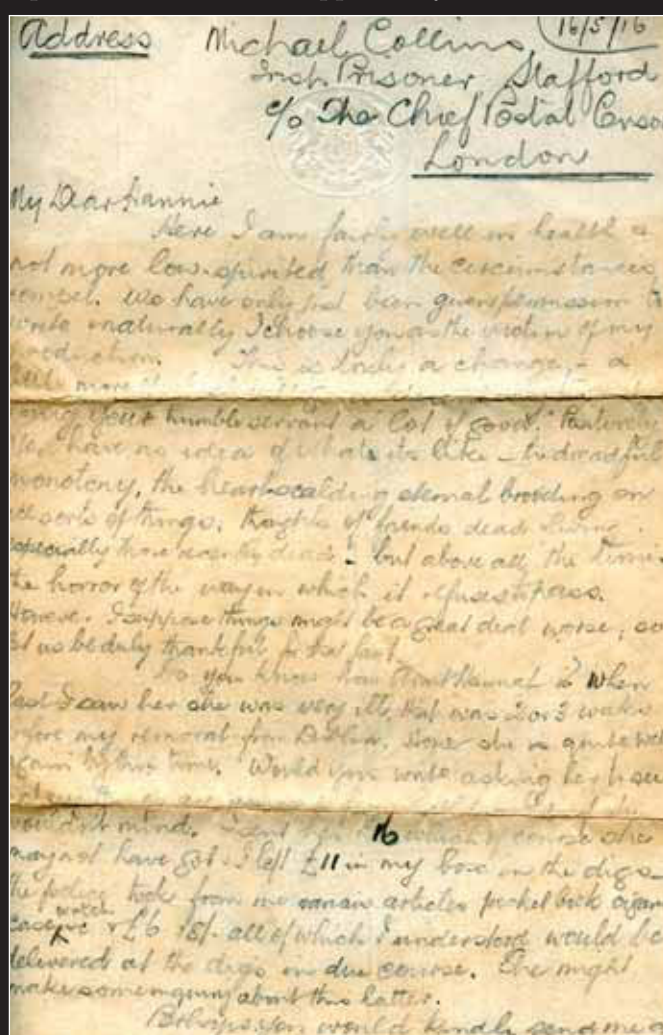 Address Michael Collins 16/5/16
Irish Prisoner Stafford
c/o The Chief Postal Censor
London
My Dear Hannie
Here I am fairly well in health &
not more low-spirited than the circumstances
compel. We have only just been given permission to
write naturally I choose you as the victim of my
production. This is a change, - a
little more
your humble servant a lot of good. Positively
you have no idea of what its like - the dreadful
monotony, the heart-scalding eternal brooding on
all sorts of things, thoughts of friends dead & living
especially those recently dead - but above all the time -
the horror of the way in which it refuses to pass.
However I suppose things might be a great deal worse, so
let us be duly thankful for that fact.
Do you know how Aunt is? When
last I saw her she was very ill, that was 2 or 3 weeks
before my removal from Dublin. Hope she is quite well
again by this time. Would you write asking her
wouldn't mind. I sent 16 which of course she
may not have got. I left £11 in my box in the digs -
the police took from me various articles pocket book cigar
case watch & £6 all of which I understood would be
delivered at the digs in due course. She might
make some inquiry about this latter.
Perhaps you would kindly send me